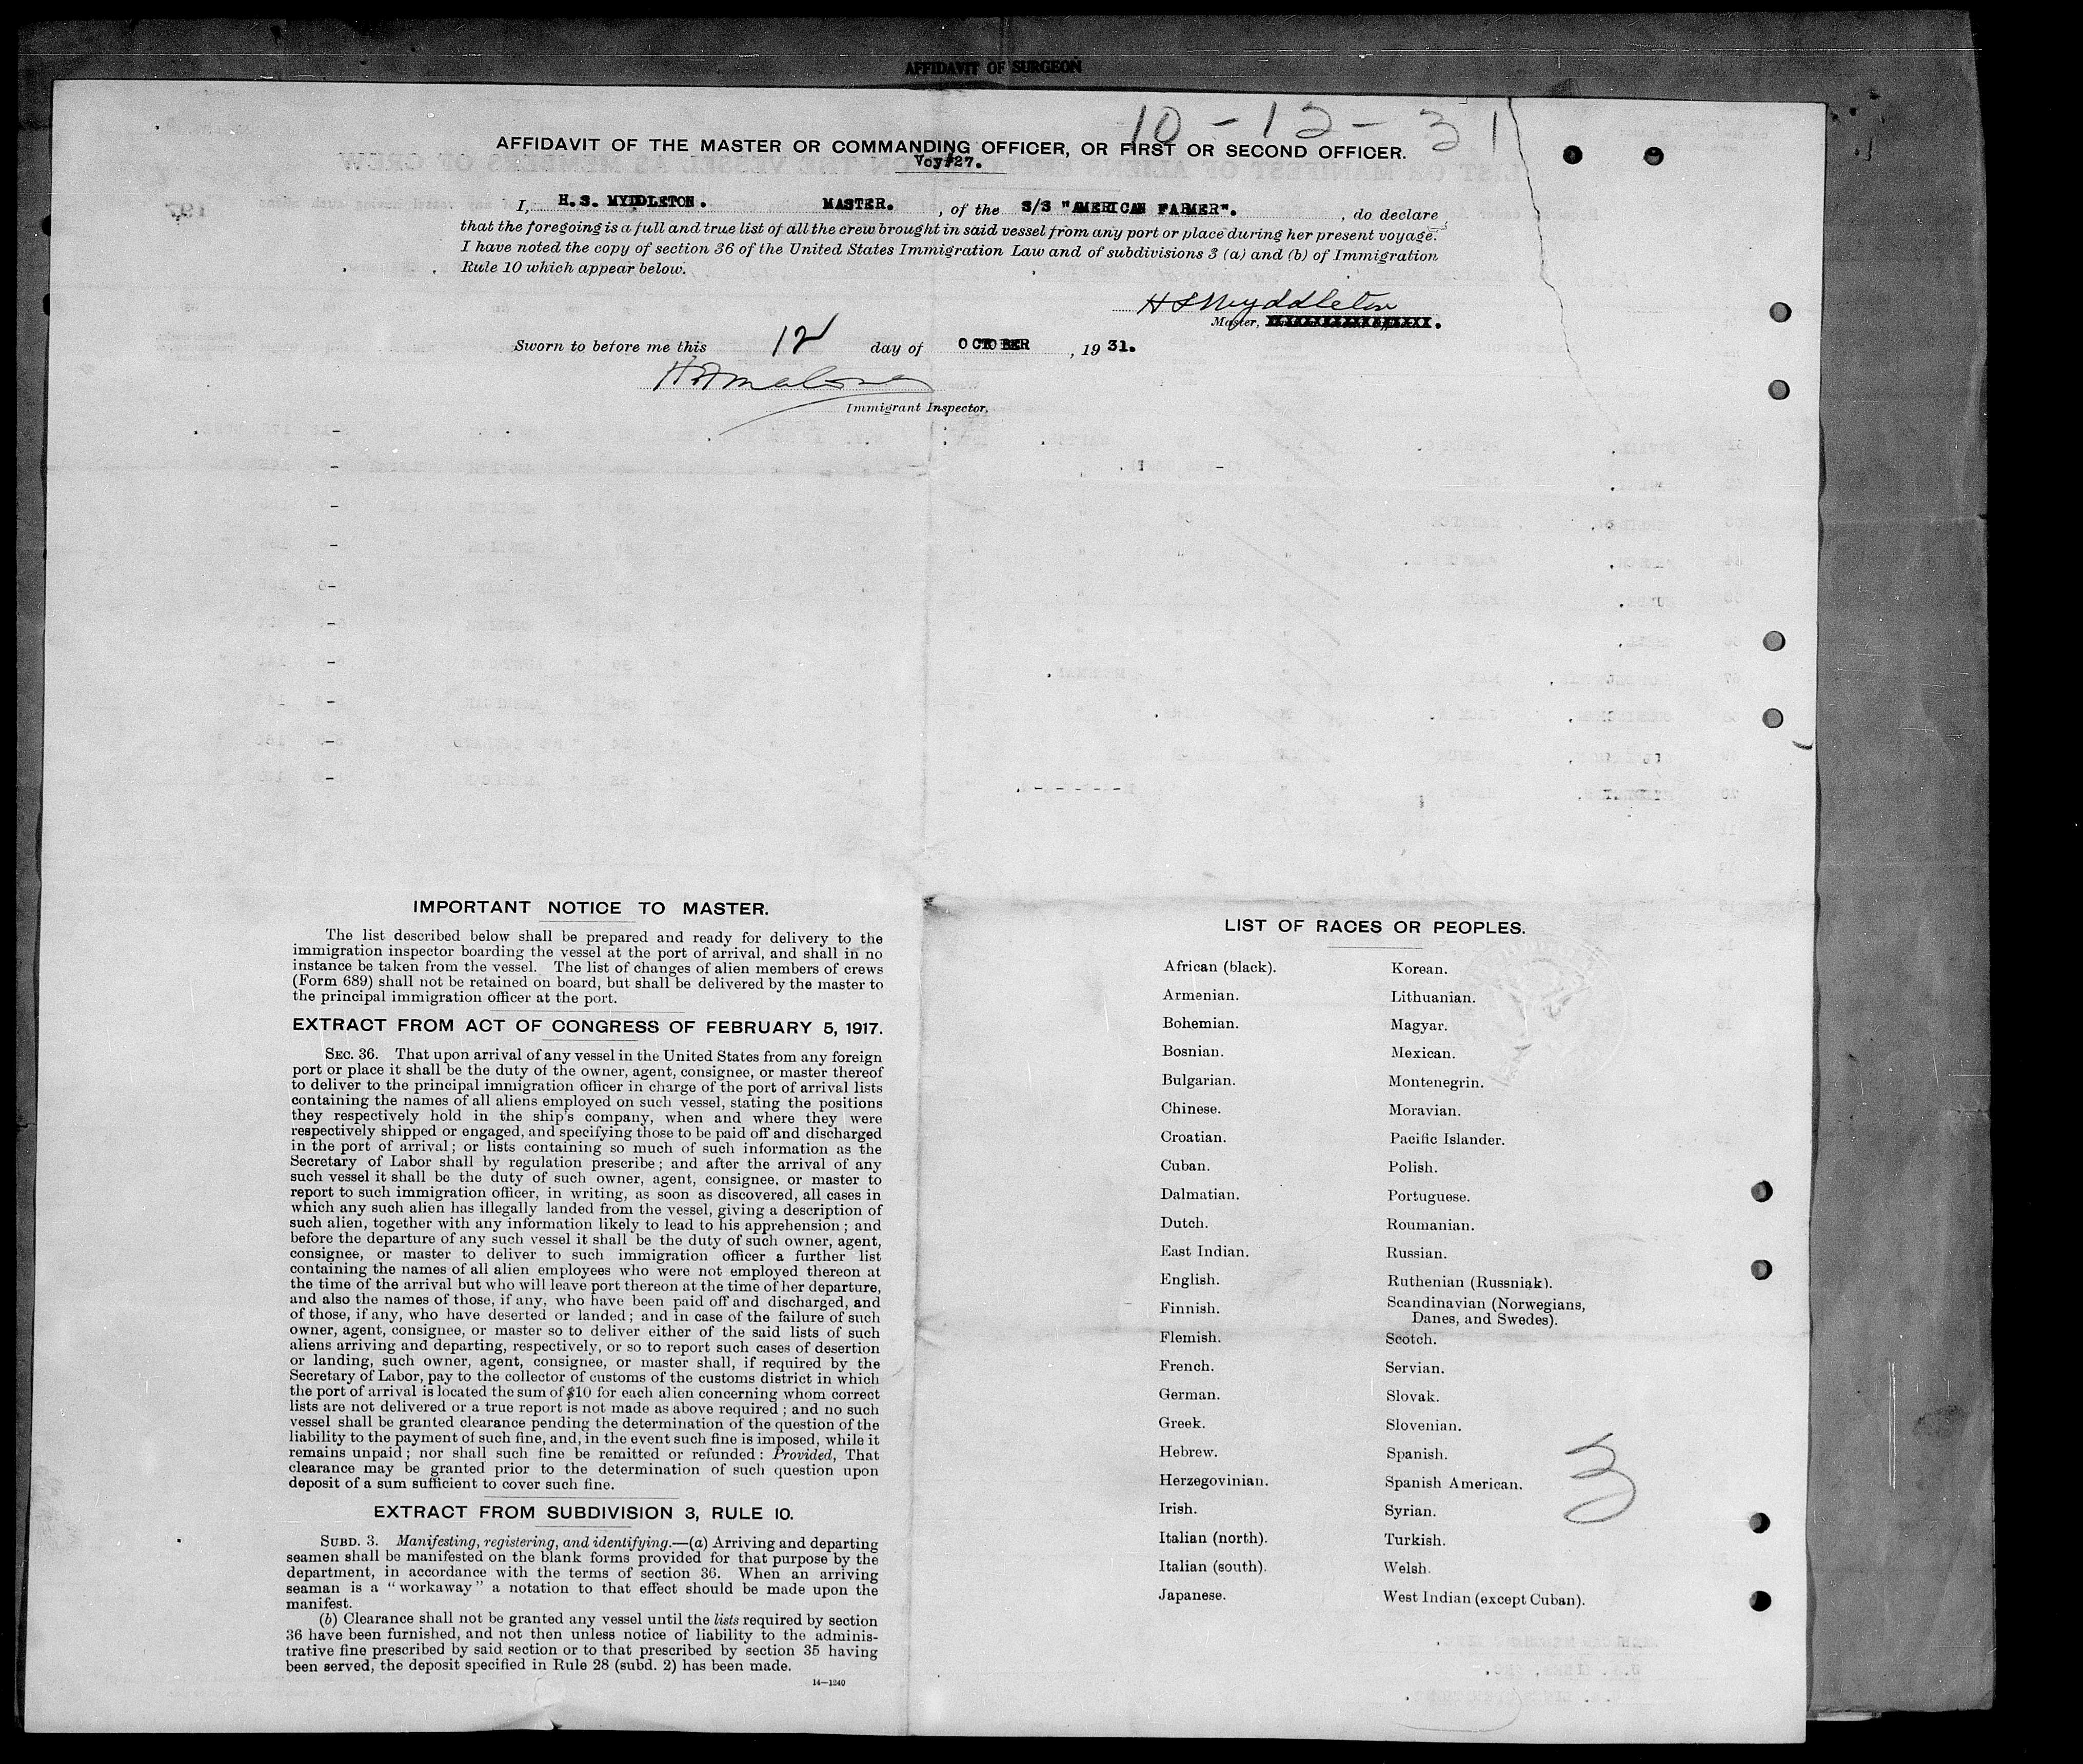 AFFIDAVIT OF SURGEON
10-12-31
AFFIDAVIT OF THE MASTER OR COMMANDING OFFICER, OR FIRST OR SECOND OFFICER.
Voy#27.
I, H.S. MYDDLETON. MASTER. , of the S/S "AMERICAN FARMER". , do declare
that the foregoing is a full and true list of all the crew brought in said vessel from any port or place during her present voyage.
I have noted the copy of section 36 of the United States Immigration Law and of subdivisions 3 (a) and (b) of Immigration
Rule 10 which appear below.
H S Myddleton
Master, XXXXXXXXXXXXXXXXXX.
Sworn to before me this 12 day of OCTOBER , 19 31.
Immigrant Inspector.
IMPORTANT NOTICE TO MASTER.
The list described below shall be prepared and ready for delivery to the
immigration inspector boarding the vessel at the port of arrival, and shall in no
instance be taken from the vessel. The list of changes of alien members of crews
(Form 689) shall not be retained on board, but shall be delivered by the master to
the principal immigration officer at the port.
EXTRACT FROM ACT OF CONGRESS OF FEBRUARY 5, 1917.
SEC. 36. That upon arrival of any vessel in the United States from any foreign
port or place it shall be the duty of the owner, agent, consignee, or master thereof
to deliver to the principal immigration officer in charge of the port of arrival lists
containing the names of all aliens employed on such vessel, stating the positions
they respectively hold in the ship's company, when and where they were
respectively shipped or engaged, and specifying those to be paid off and discharged
in the port of arrival; or lists containing so much of such information as the
Secretary of Labor shall by regulation prescribe; and after the arrival of any
such vessel it shall be the duty of such owner, agent, consignee, or master to
report to such immigration officer, in writing, as soon as discovered, all cases in
which any such alien has illegally landed from the vessel, giving a description of
such alien, together with any information likely to lead to his apprehension; and
before the departure of any such vessel it shall be the duty of such owner, agent,
consignee, or master to deliver to such immigration officer a further list
containing the names of all alien employees who were not employed thereon at
the time of the arrival but who will leave port thereon at the time of her departure,
and also the names of those, if any, who have been paid off and discharged, and
of those, if any, who have deserted or landed; and in case of the failure of such
owner, agent, consignee, or master so to deliver either of the said lists of such
aliens arriving and departing, respectively, or so to report such cases of desertion
or landing, such owner, agent, consignee, or master shall, if required by the
Secretary of Labor, pay to the collector of customs of the customs district in which
the port of arrival is located the sum of $10 for each alien concerning whom correct
lists are not delivered or a true report is not made as above required; and no such
vessel shall be granted clearance pending the determination of the question of the
liability to the payment of such fine, and, in the event such fine is imposed, while it
remains unpaid; nor shall such fine be remitted or refunded: Provided, That
clearance may be granted prior to the determination of such question upon
deposit of a sum sufficient to cover such fine.
EXTRACT FROM SUBDIVISION 3, RULE 10.
SUBD. 3. Manifesting, registering, and identifying.—(a) Arriving and departing
seamen shall be manifested on the blank forms provided for that purpose by the
department, in accordance with the terms of section 36. When an arriving
seaman is a "workaway" a notation to that effect should be made upon the
manifest.
(b) Clearance shall not be granted any vessel until the lists required by section
36 have been furnished, and not then unless notice of liability to the adminis-
trative fine prescribed by said section or to that prescribed by section 35 having
been served, the deposit specified in Rule 28 (subd. 2) has been made.
14—1240
LIST OF RACES OR PEOPLES.
African (black).
Armenian.
Bohemian.
Bosnian.
Bulgarian.
Chinese.
Croatian.
Cuban.
Dalmatian.
Dutch.
East Indian.
English.
Finnish.
Flemish.
French.
German.
Greek.
Hebrew.
Herzegovinian.
Irish.
Italian (north).
Italian (south).
Japanese.
Korean.
Lithuanian.
Magyar.
Mexican.
Montenegrin.
Moravian.
Pacific Islander.
Polish.
Portuguese.
Roumanian.
Russian.
Ruthenian (Russniak).
Scandinavian (Norwegians,
Danes, and Swedes).
Scotch.
Servian.
Slovak.
Slovenian.
Spanish.
Spanish American.
Syrian.
Turkish.
Welsh.
West Indian (except Cuban).
3